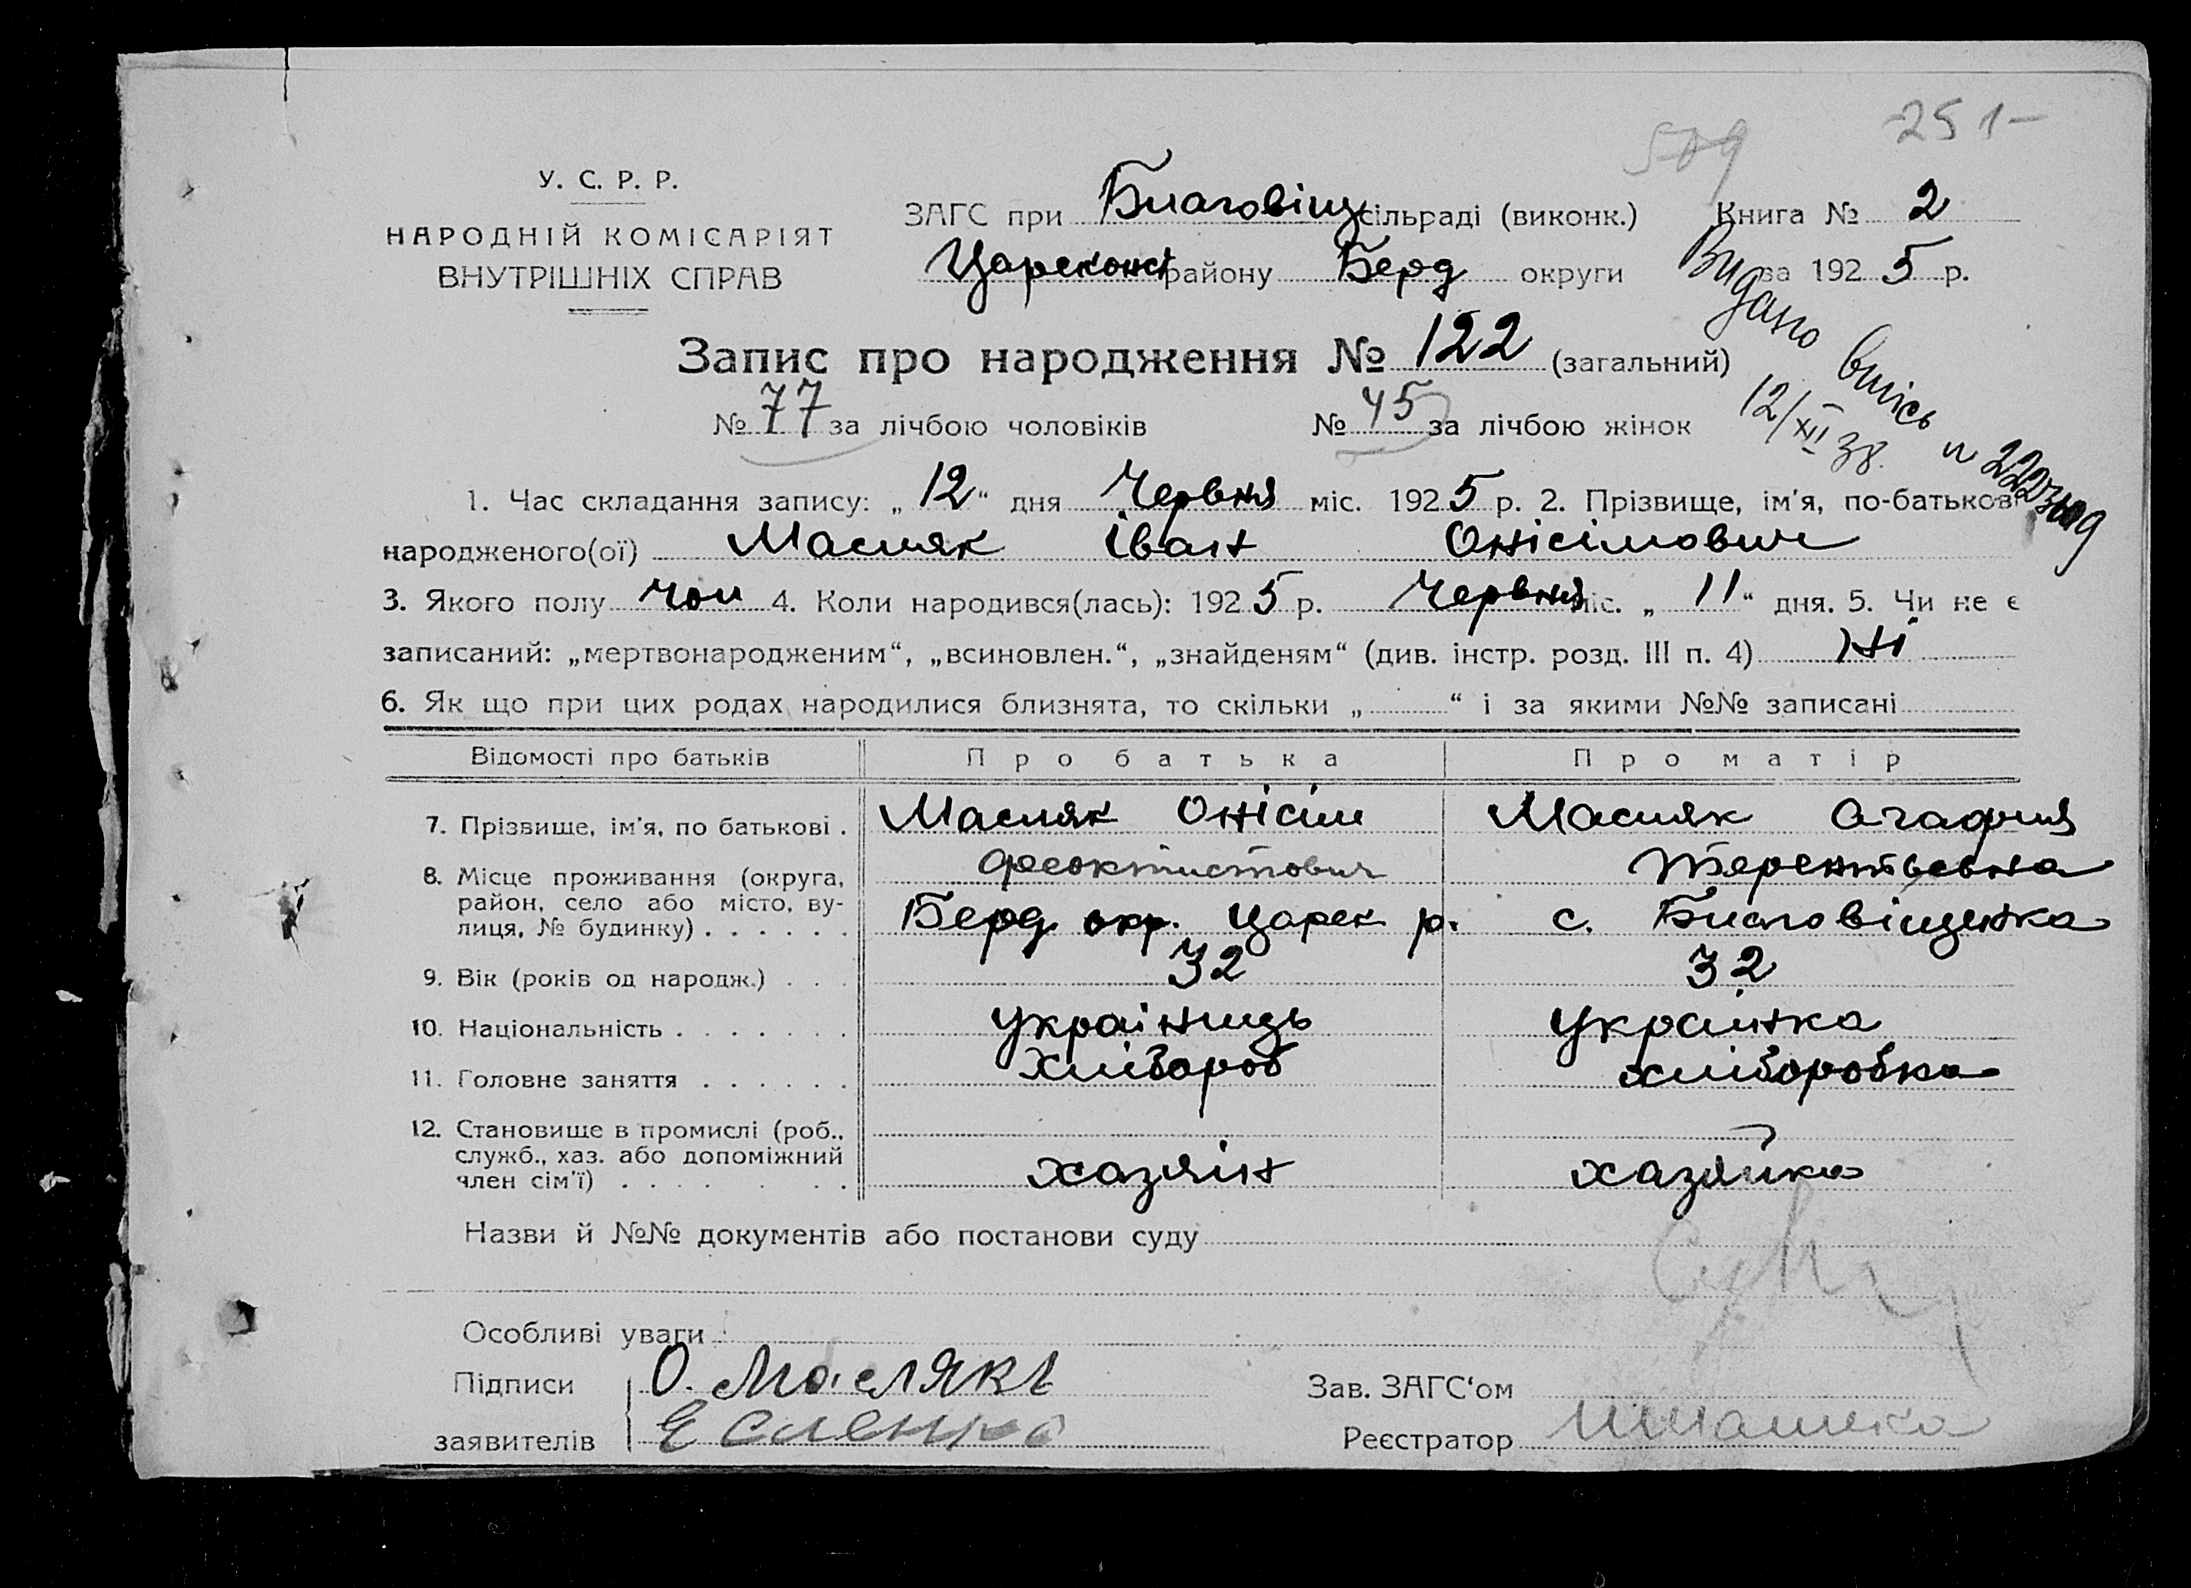 509 251-
У. С. Р. Р.
НАРОДНІЙ КОМІСАРІЯТ
ВНУТРІШНІХ СПРАВ
ЗАГС при Благовіщ сільраді (виконк.) Книга № 2
Царекост району Берд округи за 1925 р.
Запис про народження № 122 (загальний)
№ 77 за лічбою чоловіків № 45 за лічбою жінок
Видано випісь
12/XII 38.
1. Час складання запису: „12“ дня Червня міс. 1925 р. 2. Прізвище, ім'я, по-батькові
народженого(ої) Масляк Іван Онісімович
3. Якого полу чол 4. Коли народився(лась): 1925 р. Червня міс. „11“ дня. 5. Чи не є
записаний: „мертвонародженим“, „всиновлен.“, „знайденям“ (див. інстр. розд. III п. 4) Ні
6. Як що при цих родах народилися близнята, то скільки „ “ і за якими №№ записані
Відомості про батьків Про батька Про матір
7. Прізвище, ім'я, по батькові . Масляк Онісім Масляк Агафия
Феоктистович Терентьевна
8. Місце проживання (округа, район, село або місто, вулиця, № будинку) . . . . . . Берд окр. Царек р. с. Благовіщенка
9. Вік (років од народж.) . . . 32 32
10. Національність . . . . . . . Україниць Українка
11. Головне заняття . . . . . . Хлібороб хліборобка
12. Становище в промислі (роб., служб., хаз. або допоміжний член сім'ї) . . . . . . хазяін хазяйка
Назви й №№ документів або постанови суду
Особливі уваги
Підписи О. Маслякъ Зав. ЗАГС'ом
заявителів Е Сленко Реєстратор